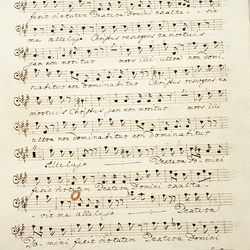 fecit virtutem Dextera Domini exalta- vit
me alleluja Christus resurgens ex mortuis
jam non moritur mors illi ultra non domi
nabitur non dominabitur Christus resurgens ex
mortuis Christus jam non moritur mors illi
ultra non dominabitur non dominabitur
Alleluja Dextera Domini
fecit virtutem Dextera Domini exalta-
vit me alleluja Dextera
Do- mini fecit virtutem Dextera Domini